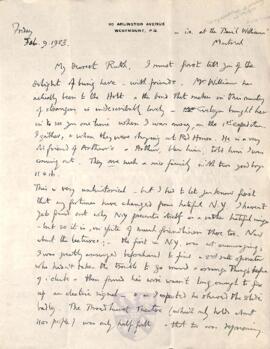 Friday
Feb. 9. 1923.
90 ARLINGTON AVENUE
WESTMOUNT, P.Q.
– i.e. at the Basil Williams
Montreal
My Dearest Ruth, I must first tell you of the
delight of being here – with friends. Mr. William has
actually been to the Holt – the bond that makes in this country
of strangers is indescribably lovely –
to see you one time when I was away, on the 1st expedition
I gather, & when they were staying at Red House. He is a very
old friend of Arthur's & Arthur, bless him, told him I was
coming out. They are such a nice family with two good boys
11 & 16.
This is very unhistorical – but I had to let you know first
that my fortunes have changed from hateful N.Y. I haven't
yet found out why N.Y. presents itself as a rather hateful image
– but so it is, in spite of much friendliness there too. Now
about the lectures: – the first in N.Y. was at
I was greatly annoyed beforehand to find a 2nd rate operator
who hadn't taken the trouble to go round & arrange things before
6 o'clock – then found his wire wasn't long enough to fix
up an electric signal – as I expected he showed the slides
badly. The Broadhurst Theatre (which only holds about
1100 people) was only half full – that too was depressing.